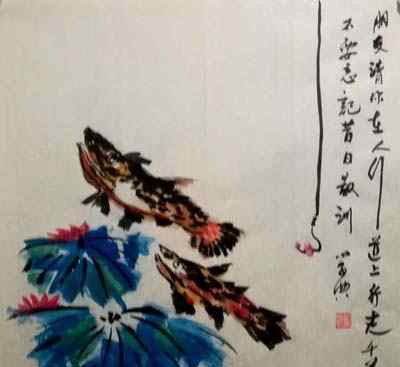 朋友请你在人行道上行走千万
不要忘記昔日教训